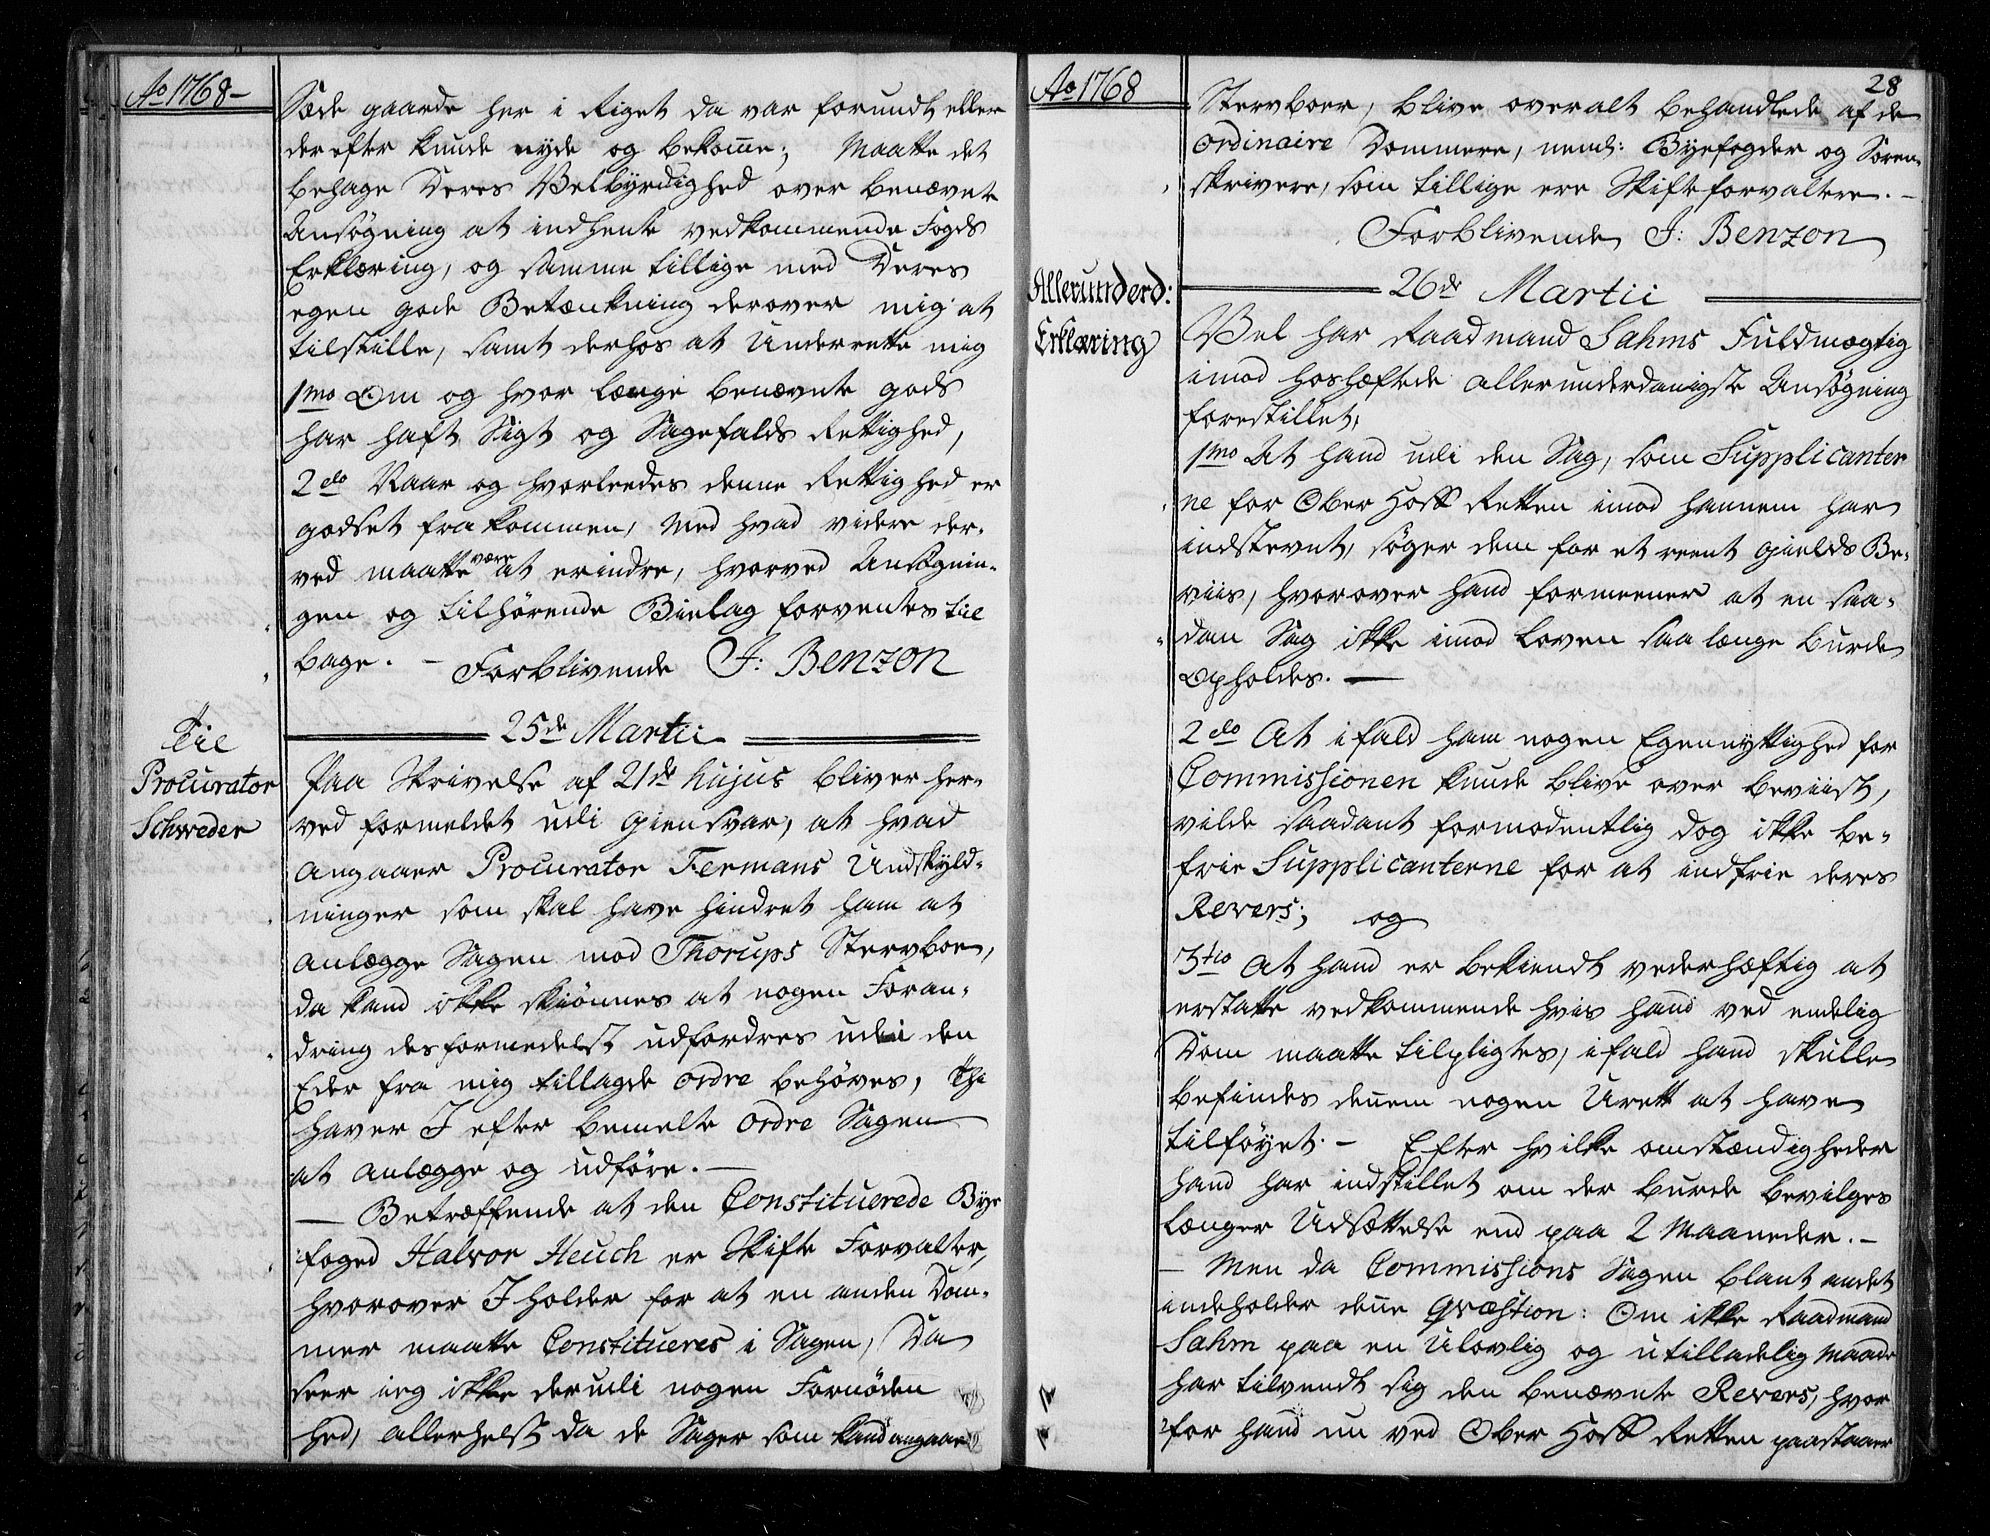 Ao 1768 –
Sæde gaarde her i Riget da var forundt eller
derefter kunde nyde og bekomme; Maatte det
behage Deres Velbyrdighed over benævnte
Ansøgning at indhente vedkommende Fogds
Erklæring, og samme tillige med Deres
egen gode Betænkning derover mig at
tilstille, samt derhos at Underrette mig
1mo Om og hvor længe benævnte gods
har haft Sigt og Sagefalds Rettighed,
2do Naar og hvorleedes denne Rettighed er
godset frakommen, Med hvad videre der-
ved maatte være at erindre, hvorved Ansøgnin-
gen og tilhørende Bielag forventes til
bage. – Forblivende J: Benzon
25de Martii
Til
Procurator
Schweder
Paa Skrivelse af 21de hujus bliver her-
ved formeldet udi giensvar, at hvad
angaaer Procurator Fermans Undskyld-
ninger som skal have hindret ham at
anlægge Sagen mod Thorups Stervboe,
da kand ikke skiønnes at nogen Foran-
dring desformedelst udfordres udi den
Eder fra mig tillagde ordre behøves, thi
haver I efter bemelte ordre Sagen
at anlægge og udføre. –
– Betræffende at den Constituerede Bye
foged Halvor Heuch er Skifte Forvalter,
hvorover I holder for at en anden Dom-
mer maatte Constitueres i Sagen, Da
seer ieg ikke derudi nogen Fornøden
hed, allerhelst da de Sager som kand angaae
Ao 1768
28
Stervboer, blive overalt behandlede af de
ordinaire Dommere, neml: Byefogder og Soren-
skrivere, som tillige ere Skifteforvaltere. –
Forblivende J: Benzon
26de Martii
Allerunderd:
Erklæring
Vel har Raadmand Sahms Fuldmægtig
imod hoshæftede allerunderdanigste Ansøgning
forestillet,
1mo At hand udi den Sag, som Supplicanter
ne for Ober Hoff Retten imod hannem har
indstevnt, søger dem for et reent gields Be-
viis, hvorover hand formeener at en saa-
dan Sag ikke imod Loven saa længe burde
Opholdes. –
2do At ifald ham nogen Egennyttighed for
Commissionen kunde blive over beviist,
vilde saadant formodentlig dog ikke be-
frie Supplicanterne for at indfrie deres
Revers; og
3tio At hand er bekiendt vederhæftig at
erstatte vedkommende hvis hand ved endelig
Dom maatte tilpligtes, ifald hand skulle
befindes dennem nogen Urett at have
tilføyet. – Efter hvilke omstændigheder
hand har indstillet om der burde bevilges
længer Udsættelse end paa 2 Maaneder. –
– Men da Commissions Sagen blant andet
indeholder denne Qvæstion: Om ikke Raadmand
Sahm paa en Ulovlig og utilladelig Maade
har tilvendt sig den benævnte Revers, hvor
for hand nu ved Ober Hoff Retten paastaaer